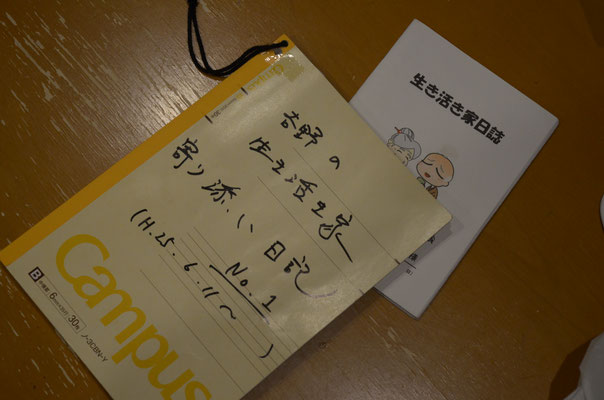 野の
生き活き家
寄り添い日記
No.1
(H.25.6.11〜 )
Campus
B
30枚
ノ-3CBN-Y
生き活き家日誌